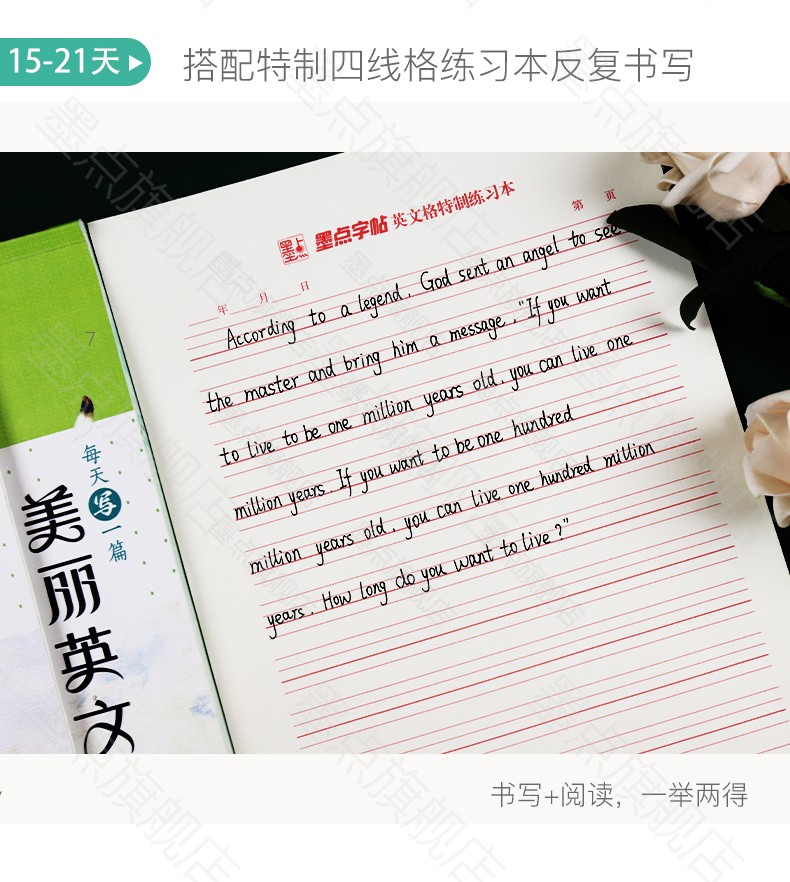 15-21天
搭配特制四线格练习本反复书写
墨点
墨点字帖 英文格特制练习本
第 页
年 月 日
According to a legend, God sent an angel to see
the master and bring him a message, "If you want
to live to be one million years old, you can live one
million years. If you want to be one hundred
million years old, you can live one hundred million
years. How long do you want to live?"
7
每天写一篇
美丽英文
书写+阅读，一举两得
墨点旗舰店